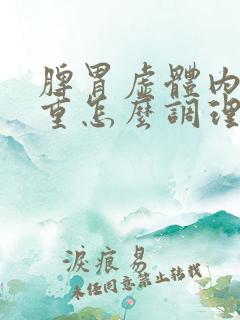 脾胃虛體內
重怎麼調理
淚痕易
未經同意禁止轉載